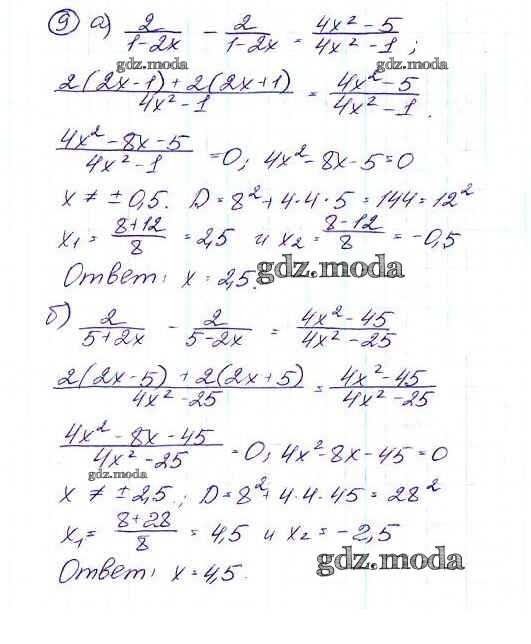 9 а) 2/(1-2x) - 2/(1-2x) = (4x² - 5)/(4x² - 1);
gdz.moda
(2(2x-1) + 2(2x+1))/(4x² - 1) = (4x² - 5)/(4x² - 1).
gdz.moda
(4x² - 8x - 5)/(4x² - 1) = 0; 4x² - 8x - 5 = 0
x ≠ ± 0,5. D = 8² + 4·4·5 = 144 = 12²
x₁ = (8+12)/8 = 2,5 и x₂ = (8-12)/8 = -0,5
Ответ: x = 2,5.
gdz.moda
б) 2/(5+2x) - 2/(5-2x) = (4x² - 45)/(4x² - 25)
(2(2x-5) + 2(2x+5))/(4x² - 25) = (4x² - 45)/(4x² - 25)
(4x² - 8x - 45)/(4x² - 25) = 0; 4x² - 8x - 45 = 0
gdz.moda
x ≠ ± 2,5; D = 8² + 4·4·45 = 28²
x₁ = (8+28)/8 = 4,5 и x₂ = -2,5
gdz.moda
Ответ: x = 4,5.